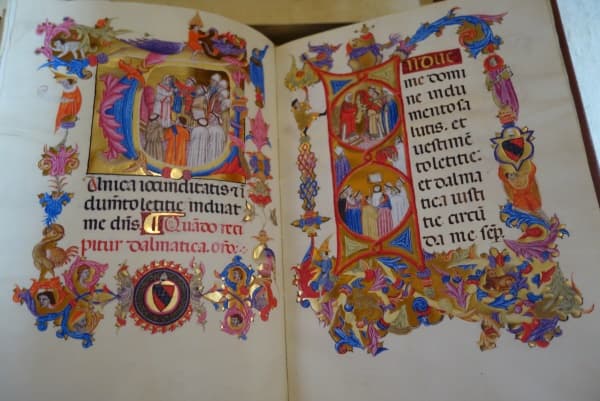 Tunica iocunditatis ⁊ ī
dumēto letitie induat
me dn̄s. ¶ Quādo reci
pitur dalmatica. orō:
Indue
me domi
ne indu
mento sa
lutis. et
uestimē
to letitie:
et dalma
tica iusti
tie circū
da me semp̱.